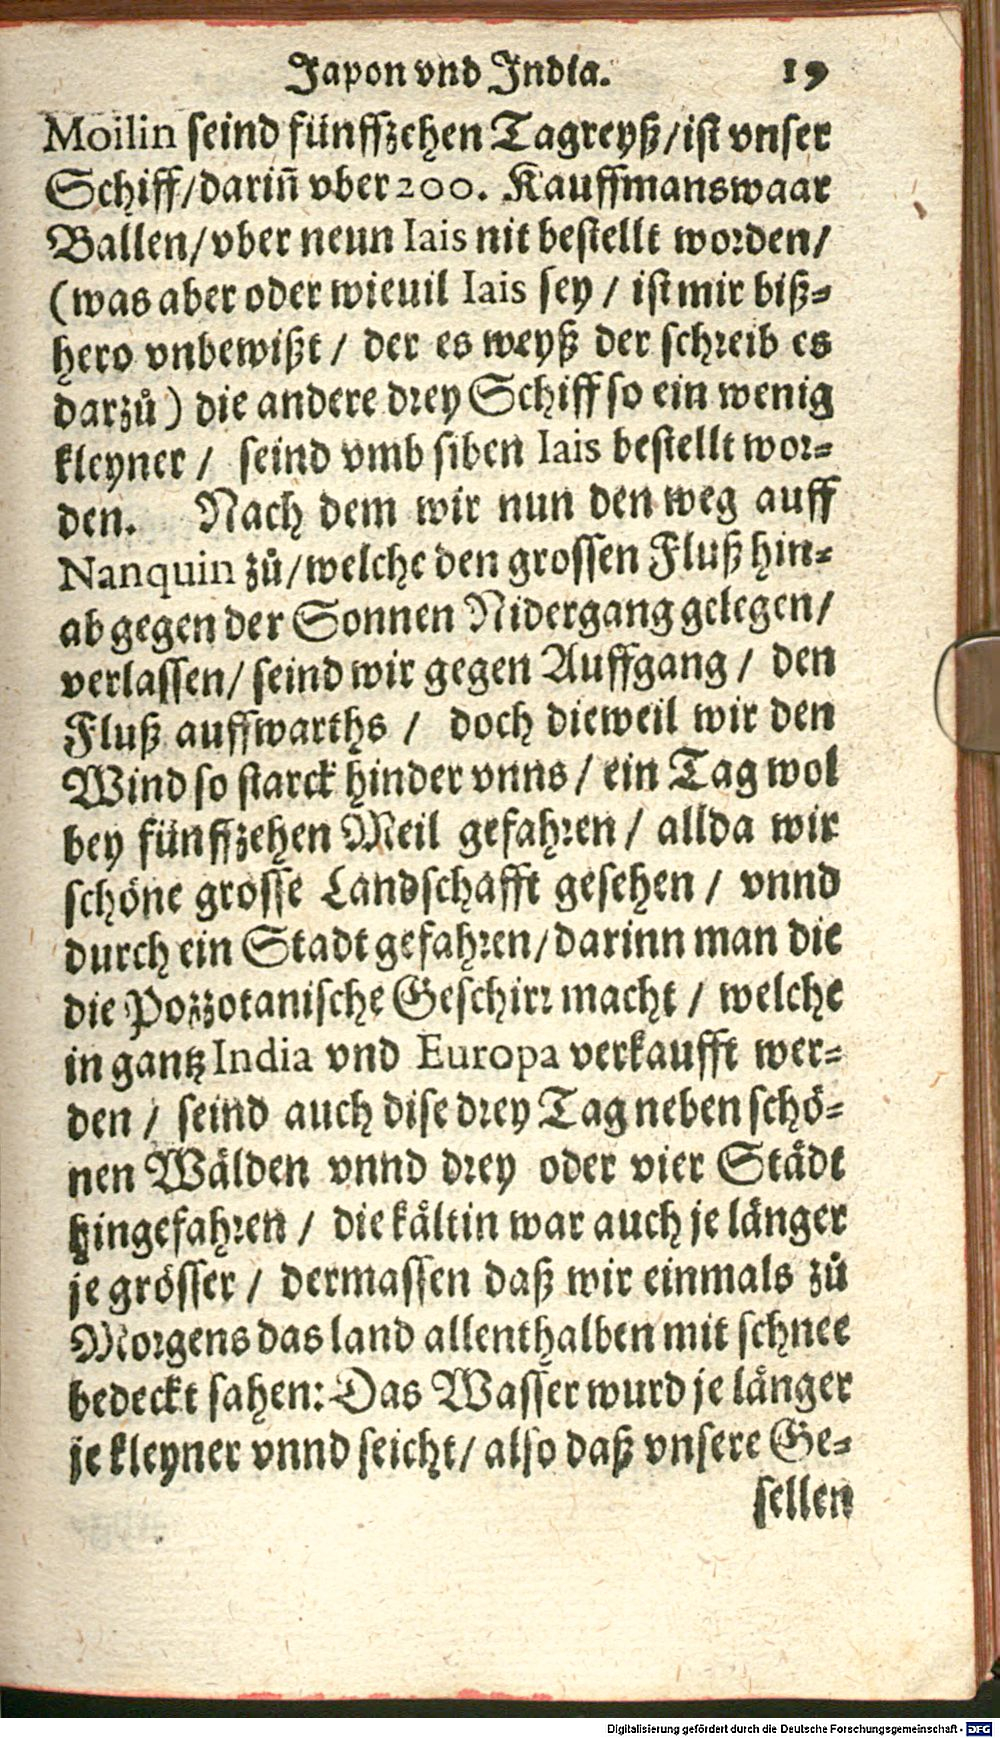 Japon vnd India. 19
Moilin seind fünffzehen Tagreyß/ist vnser
Schiff/dariñ vber 200. Kauffmanswaar
Ballen/vber neun Iais nit bestellt worden/
(was aber oder wieuil Iais sey / ist mir biß-
hero vnbewißt / der es weyß der schreib es
darzů) die andere drey Schiff so ein wenig
kleyner / seind vmb siben Iais bestellt wor-
den. Nach dem wir nun den weg auff
Nanquin zů/welche den grossen Fluß hin-
ab gegen der Sonnen Nidergang gelegen/
verlassen/ seind wir gegen Auffgang / den
Fluß auffwarths / doch dieweil wir den
Wind so starck hinder vnns / ein Tag wol
bey fünffzehen Meil gefahren / allda wir
schöne grosse Landschafft gesehen / vnnd
durch ein Stadt gefahren/darinn man die
die Pozzotanische Geschirr macht / welche
in gantz India vnd Europa verkaufft wer-
den / seind auch dise drey Tag neben schö-
nen Wälden vnnd drey oder vier Städt
hingefahren / die kältin war auch je länger
je grösser / dermassen daß wir einmals zů
Morgens das land allenthalben mit schnee
bedeckt sahen: Das Wasser wurd je länger
je kleyner vnnd seicht/ also daß vnsere Ge-
sellen
Digitalisierung gefördert durch die Deutsche Forschungsgemeinschaft - DFG